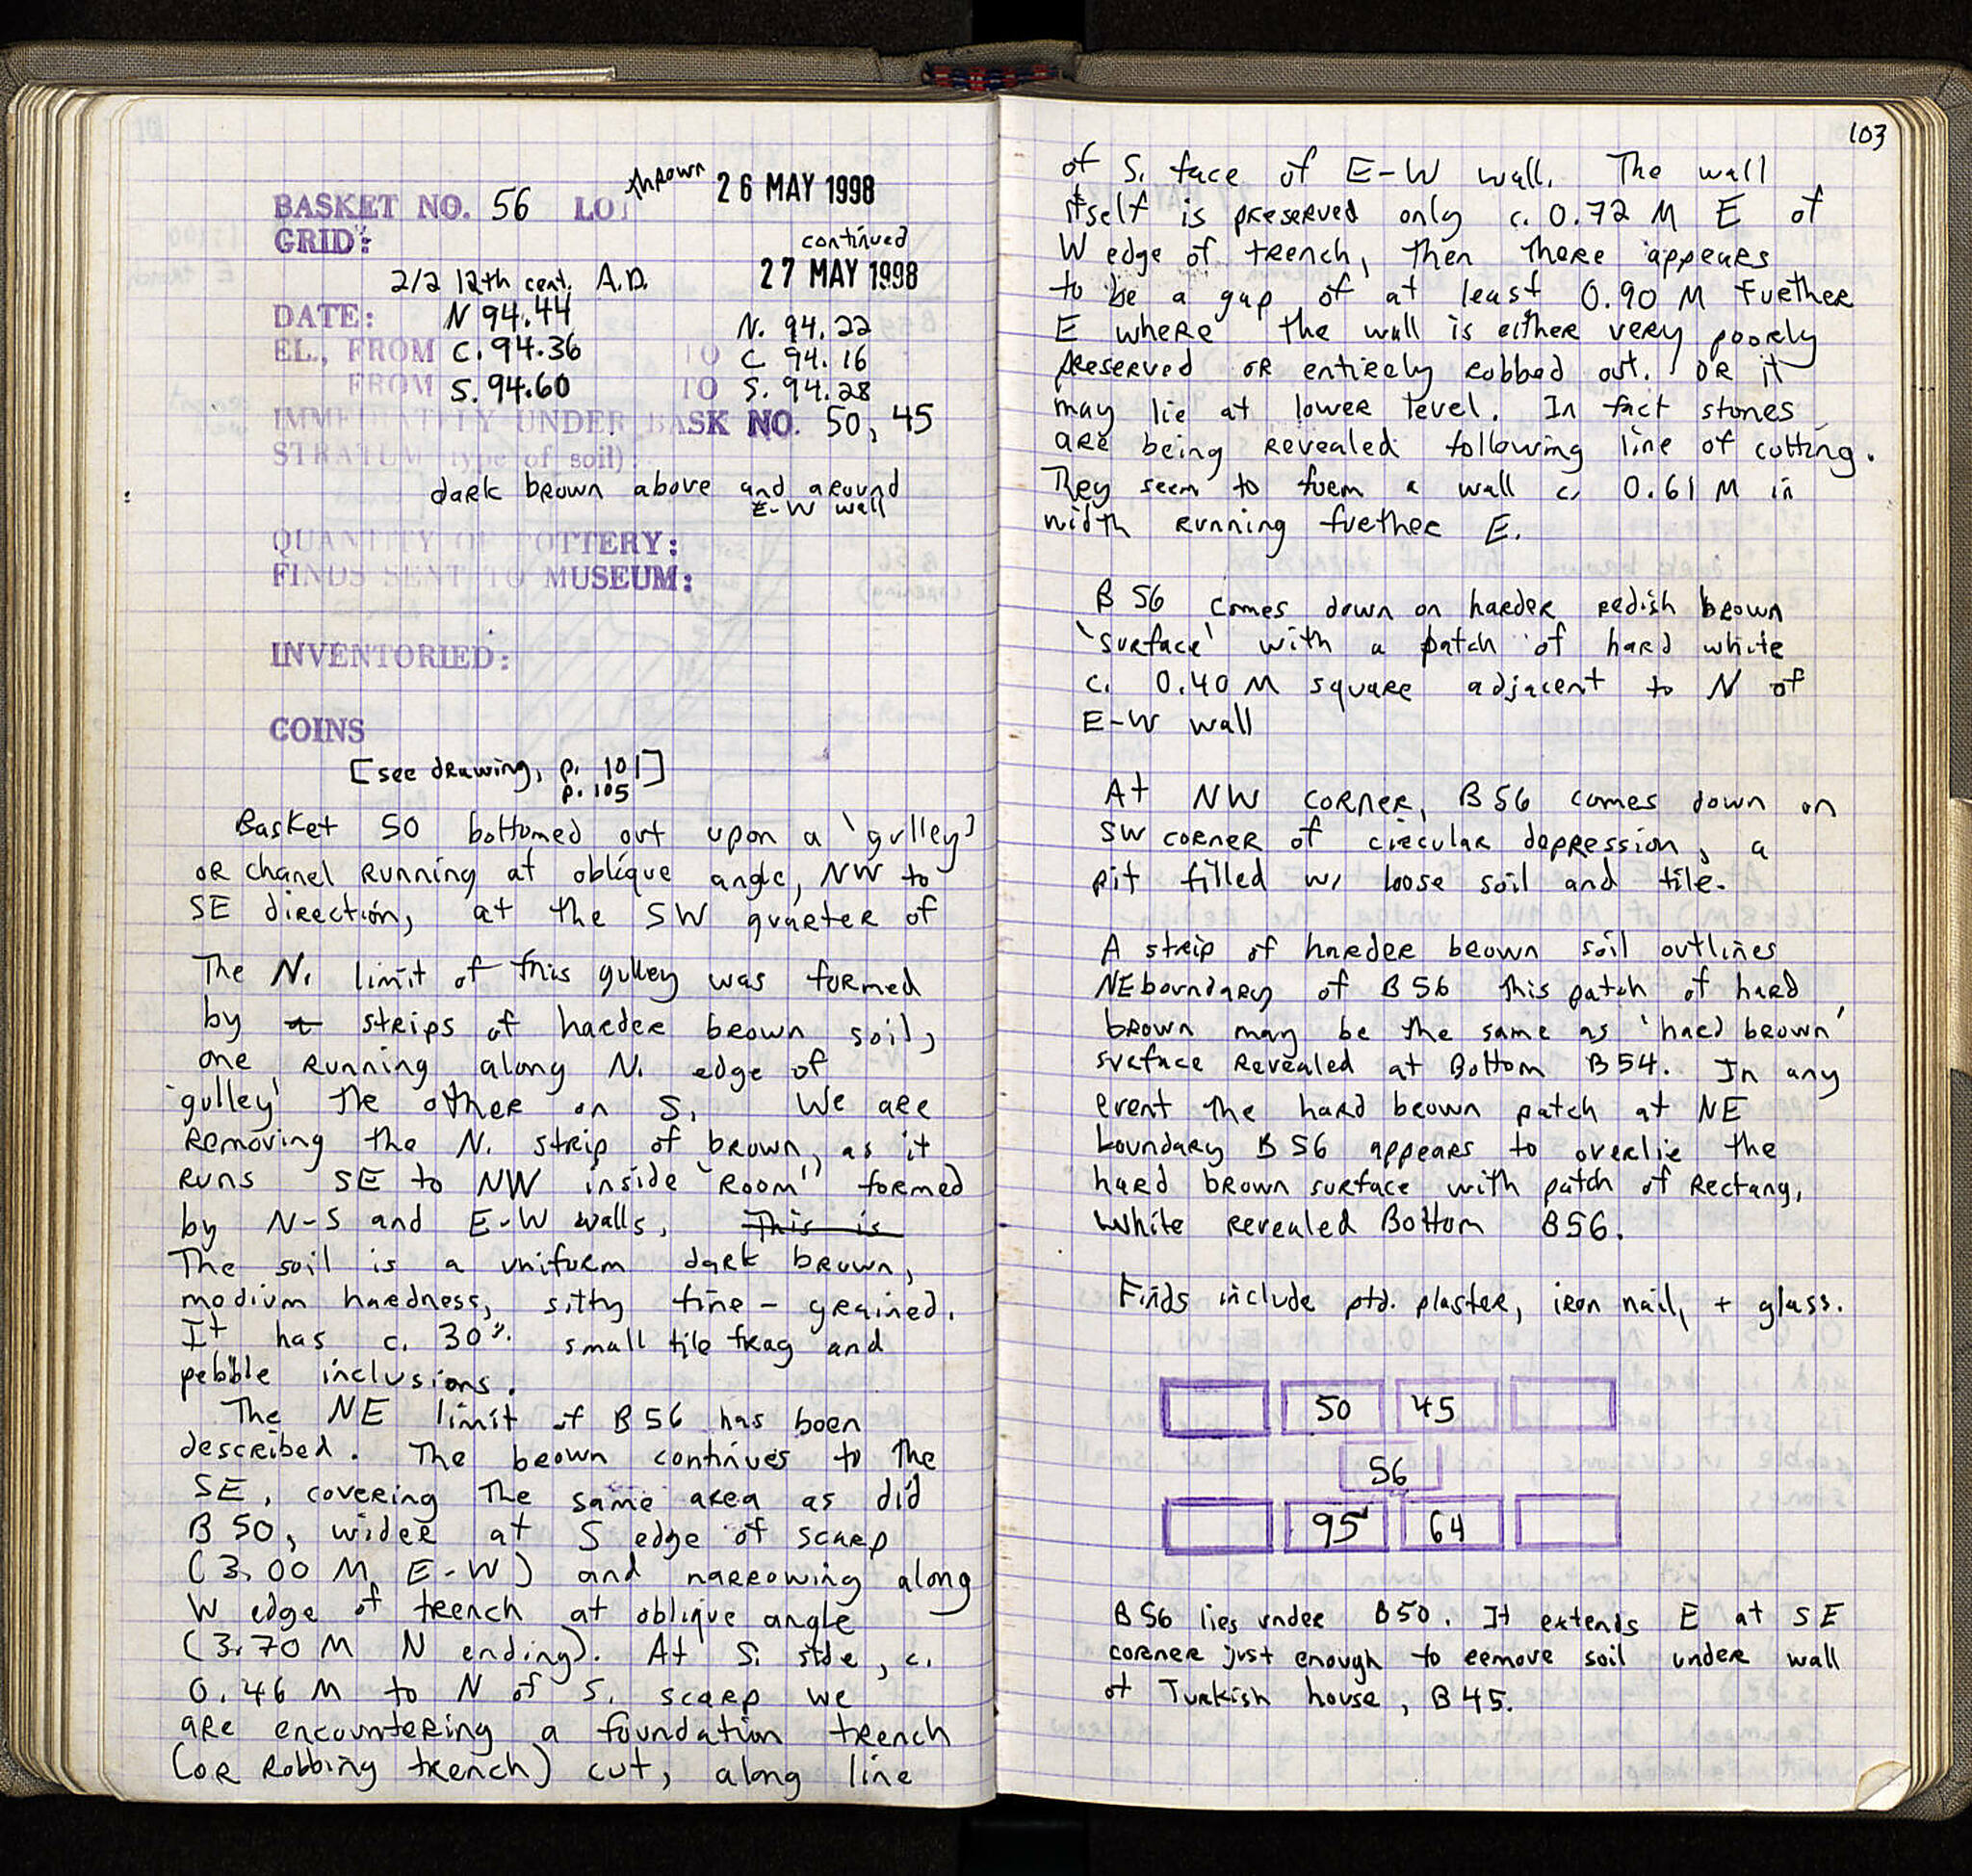 thrown 26 MAY 1998
BASKET NO. 56 LOT
GRID:
continued
2/2 12th cent. A.D. 27 MAY 1998
DATE: N 94.44 N. 94.22
EL., FROM C. 94.36 TO C 94.16
FROM S. 94.60 TO S. 94.28
IMMEDIATELY UNDER BASK NO. 50, 45
STRATUM (type of soil):
dark brown above and around
E-W wall
QUANTITY OF POTTERY:
FINDS SENT TO MUSEUM:
INVENTORIED:
COINS
[see drawing, p. 101]
p. 105
Basket 50 bottomed out upon a 'gulley'
or chanel running at oblique angle, NW to
SE direction, at the SW quarter of
The N. limit of this gulley was formed
by a strips of harder brown soil,
one running along N. edge of
'gulley' the other on S. We are
removing the N. strip of brown, as it
runs SE to NW inside "room" formed
by N-S and E-W walls. This is
The soil is a uniform dark brown,
medium hardness, silty fine-grained.
It has c. 30% small tile frag and
pebble inclusions.
The NE limit of B56 has been
described. The brown continues to the
SE, covering the same area as did
B 50, wider at S edge of scarp
(3.00 M E-W) and narrowing along
W edge of trench at oblique angle
(3.70 M N ending). At S. side, c.
0.46 M to N of S. scarp we
are encountering a foundation trench
(or robbing trench) cut, along line
103
of S. face of E-W wall. The wall
itself is preserved only c. 0.72 M E of
W edge of trench, then there appears
to be a gap of at least 0.90 M further
E where the wall is either very poorly
preserved or entirely robbed out. Or it
may lie at lower level. In fact stones
are being revealed following line of cutting.
They seem to form a wall c. 0.61 M in
width running further E.
B 56 comes down on harder redish brown
'surface' with a patch of hard white
c. 0.40 M square adjacent to N of
E-W wall
At NW corner, B56 comes down on
SW corner of circular depression, a
pit filled w/ loose soil and tile.
A strip of harder brown soil outlines
NE boundary of B56 this patch of hard
brown may be the same as 'hard brown'
surface revealed at Bottom B54. In any
event the hard brown patch at NE
boundary B56 appears to overlie the
hard brown surface with patch of rectang.
white revealed Bottom B56.
Finds include ptd. plaster, iron nail, + glass.
50 45
56
95 64
B56 lies under B50. It extends E at SE
corner just enough to remove soil under wall
of Turkish house, B45.